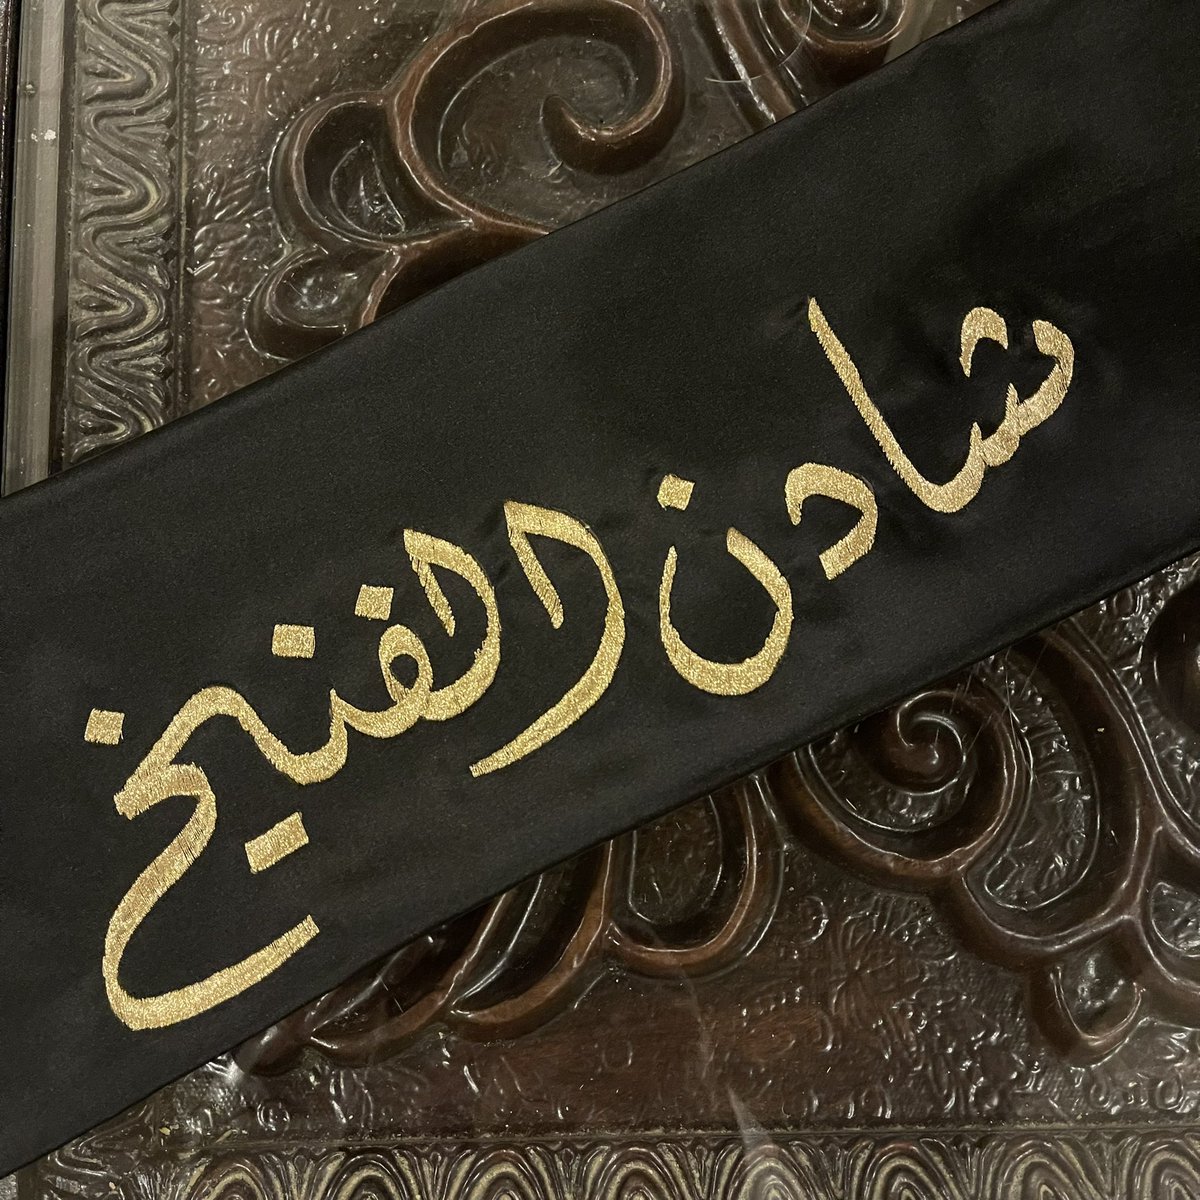 شادن الفنيخ